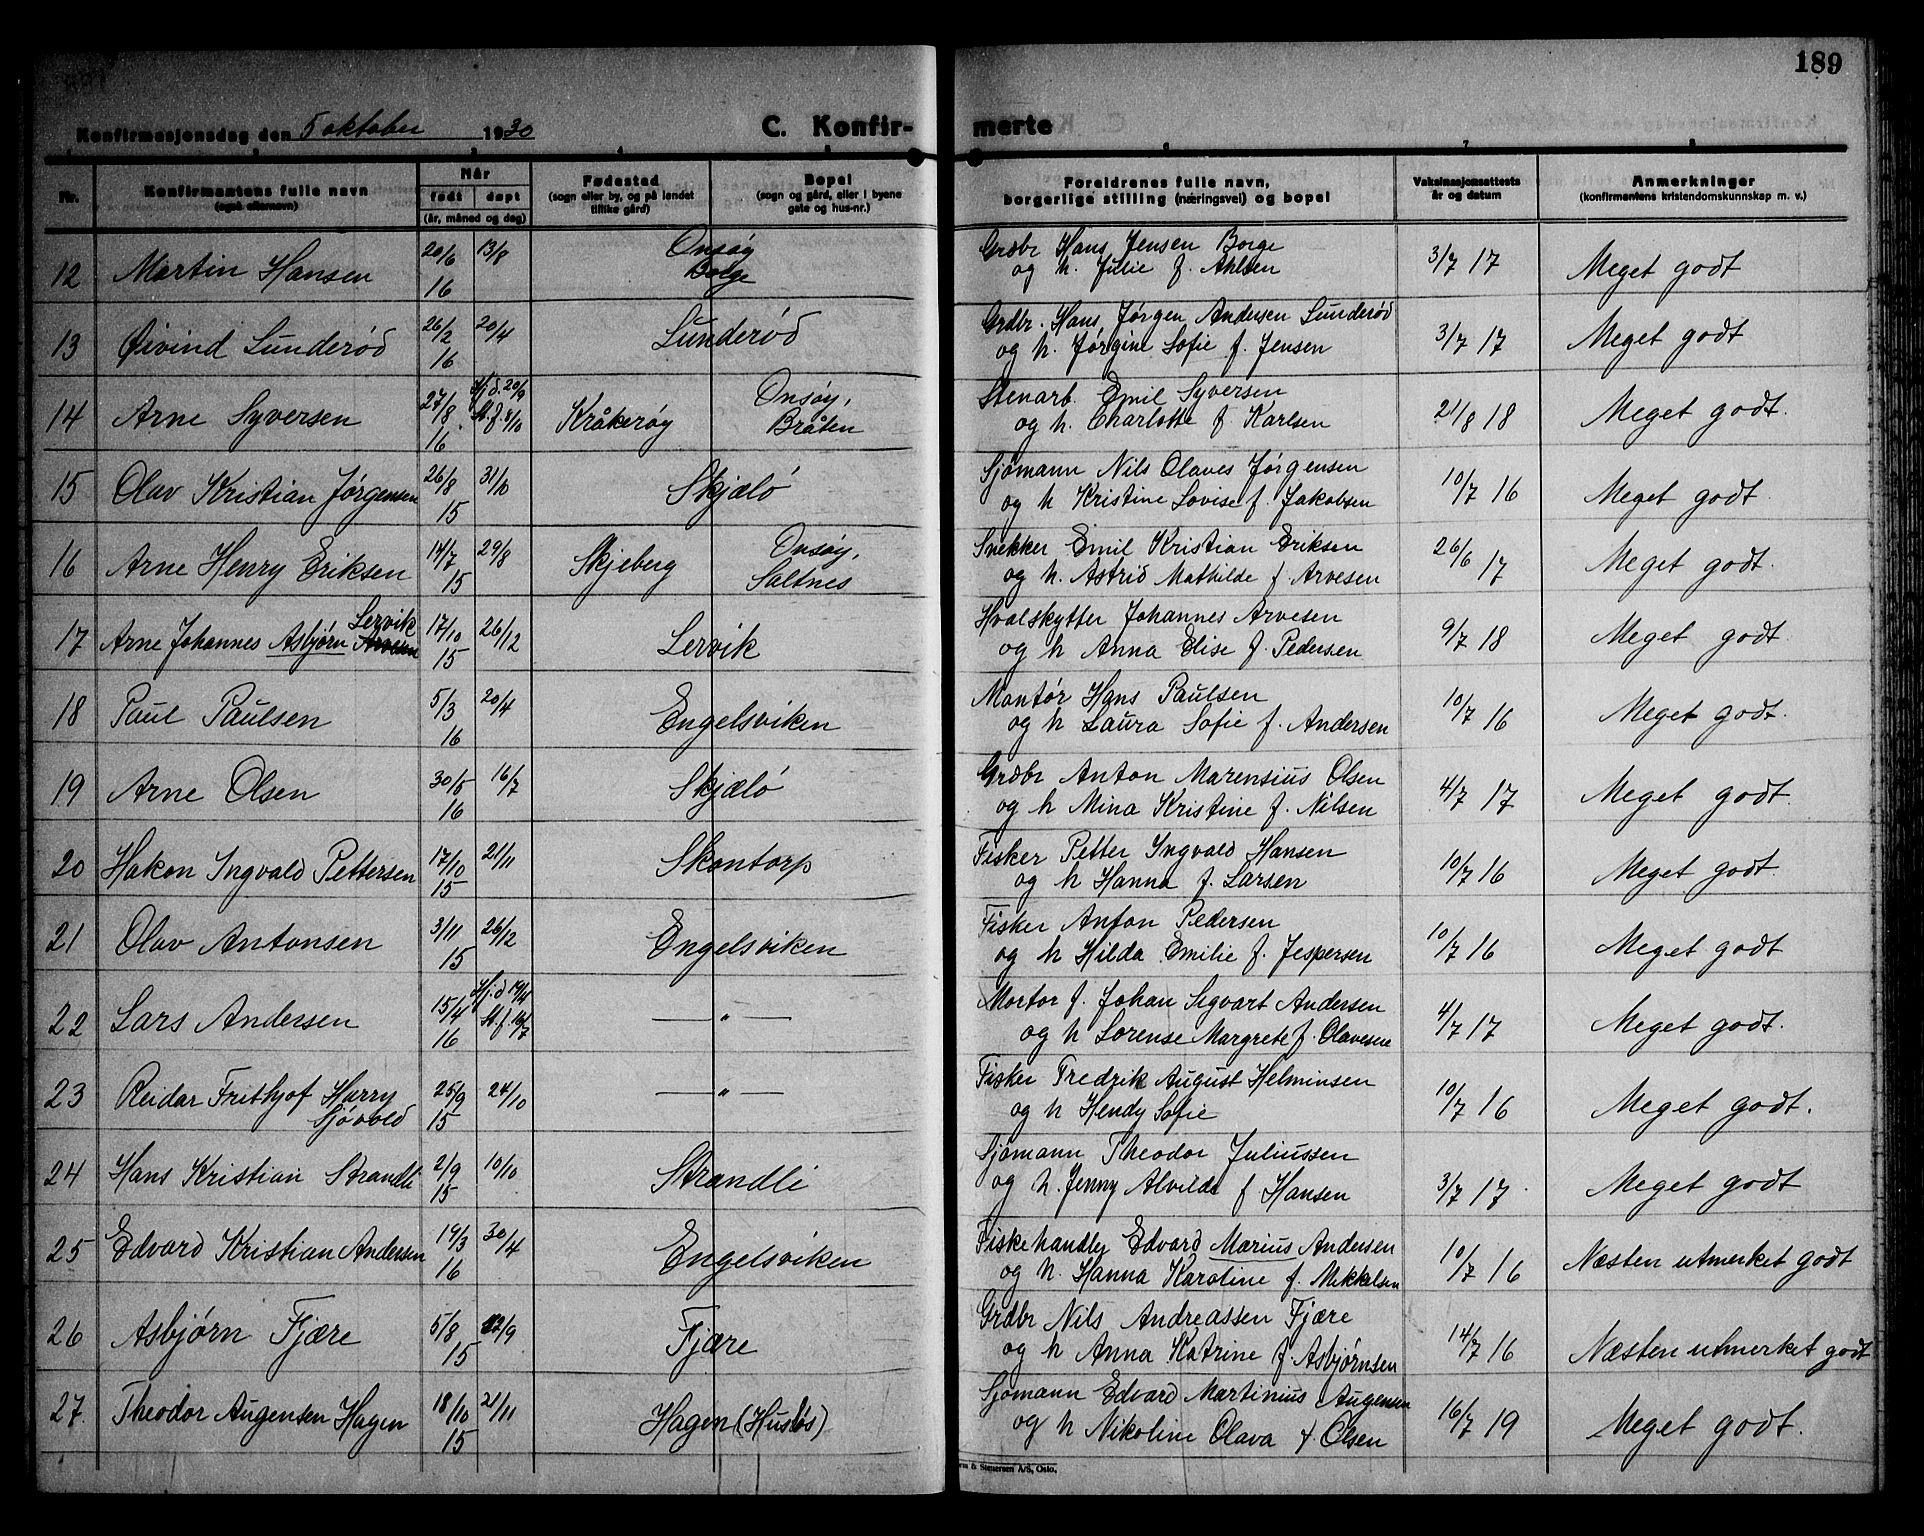 189
Konfirmasjonsdag den 5 oktober 1930 C. Konfir- merte
Nr.
Konfirmantens fulle navn
(også efternavn)
Når
født døpt
(år, måned og dag)
Fødested
(sogn eller by, og på landet
tillike gård)
Bopel
(sogn og gård, eller i byene
gate og hus-nr.)
Foreldrenes fulle navn,
borgerlige stilling (næringsvei) og bopel
Vaksinasjonsattests
år og datum
Anmerkninger
(konfirmantens kristendomskunnskap m. v.)
12 Martin Hansen 20/6 16 13/8 Onsøy Borge Grdbr Hans Jensen Borge 3/7 17 Meget godt
og h. Julie f. Ahlsen
13 Øivind Lunderød 26/2 16 20/4 Lunderød Grdbr. Hans Jørgen Andersen Lunderød 3/7 17 Meget godt
og h. Jørgine Sofie f. Jensen
14 Arne Syversen 27/8 16 Hj.d. 20/9 St.f. 8/10 Kråkerøy Onsøy, Bråten Stenarb. Emil Syversen 21/8 18 Meget godt.
og h. Charlotte f Karlsen
15 Olav Kristian Jørgensen 26/8 15 31/10 Skjælø Sjømann Nils Olaves Jørgensen 10/7 16 Meget godt.
og h Kristine Lovise f. Jakobsen
16 Arne Henry Eriksen 14/7 15 29/8 Skjeberg Onsøy, Saltnes Snekker Emil Kristian Eriksen 26/6 17 Meget godt.
og h. Astrid Mathilde f. Arvesen
17 Arne Johannes Asbjørn Arvesen Lervik 17/10 15 26/12 Lervik Hvalskytter Johannes Arvesen 9/7 18 Meget godt.
og h Anna Elise f. Pedersen
18 Paul Paulsen 5/3 16 20/4 Engelsviken Montør Hans Paulsen 10/7 16 Meget godt.
og h Laura Sofie f. Andersen
19 Arne Olsen 30/5 16 16/7 Skjælø Grdbr Anton Marensius Olsen 4/7 17 Meget godt.
og h Mina Kristine f. Nilsen
20 Hakon Ingvald Pettersen 17/10 15 21/11 Skontorp Fisker Petter Ingvald Hansen 10/7 16 Meget godt.
og h Hanna f. Larsen
21 Olav Antonsen 3/11 15 26/12 Engelsviken Fisker Anton Pedersen 10/7 16 Meget godt
og h Hilda Emilie f. Jespersen
22 Lars Andersen 15/4 16 Hj.d 19/4 St.f 16/7 — " — Johan Sigvart Andersen 4/7 17 Meget godt.
og h Lorense Margrete f. Olavesen
23 Reidar Frithjof Harry Sjøvold 25/9 15 24/10 — " — Fisker Fredrik August Helminsen 10/7 16 Meget godt.
og h Hendy Sofie
24 Hans Kristian Strandli 2/9 15 10/10 Strandli Sjømann Theodor Juliussen 3/7 17. Meget godt
og h. Jenny Alvilde f Hansen
25 Edvard Kristian Andersen 19/3 16 30/4 Engelsviken Fiskehandler Edvard Marius Andersen 10/7 16 Næsten utmerket godt
og h. Hanna Karoline f. Mikkelsen
26 Asbjørn Fjære 5/8 15 12/9 Fjære Grdbr Nils Andreassen Fjære 14/7 16 Næsten utmerket godt
og h Anna Katrine f. Asbjørnsen
27. Theodor Augensen Hagen 18/10 15 21/11 Hagen (Husløs) Sjømann Edvard Martinius Augensen 16/7 19 Meget godt.
og h Nikoline Olava f Olsen
& Stenersen A/S, Oslo.